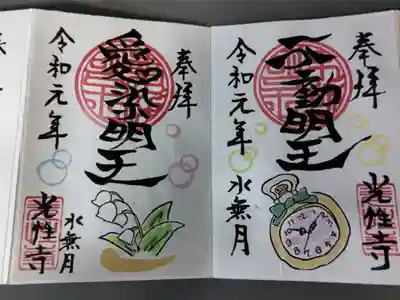 奉拝
不動明王
令和元年 水無月
光性寺
奉拝
愛染明王
令和元年
水無月
光性寺